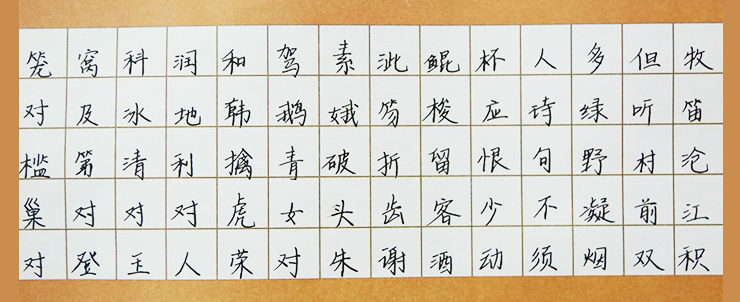 笼对槛巢对
窝及第对登
科冰清对王
润地利对人
和韩擒虎荣
驾鹅青女对
素娥破头朱
泚笏折齿谢
鲲梭留客酒
杯应恨少动
人诗句不须
多绿野凝烟
但听村前双
牧笛沧江积